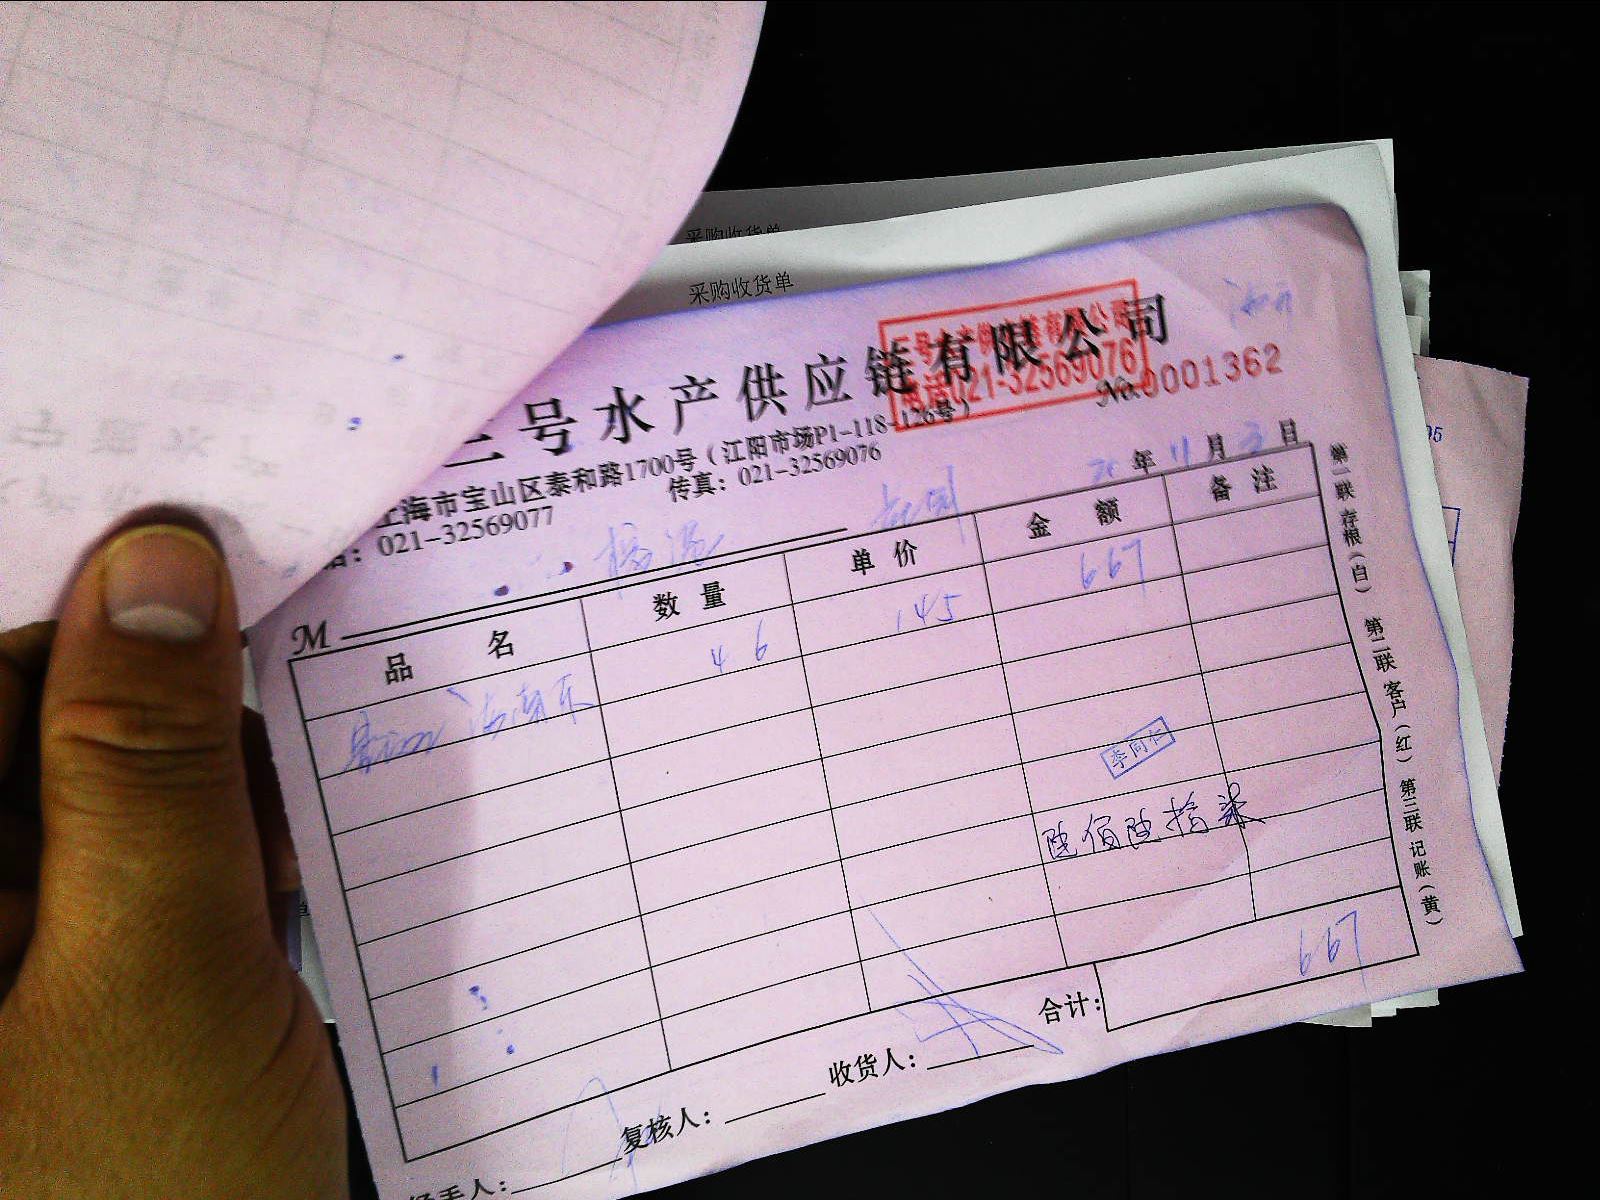 采购收货单
采购收货单
三号水产供应链有限公司
三号水产供应链有限公司
电话021-32569076
No.0001362
上海市宝山区泰和路1700号(江阳市场P1-118-126号)
话:021-32569077 传真:021-32569076
20年11月3日
M
品名 数量 单价 金额 备注
46 145 667
李同仁
陆佰陆拾柒
合计: 667
收货人:
复核人:
经手人:
第一联 存根(白) 第二联 客户(红) 第三联 记账(黄)